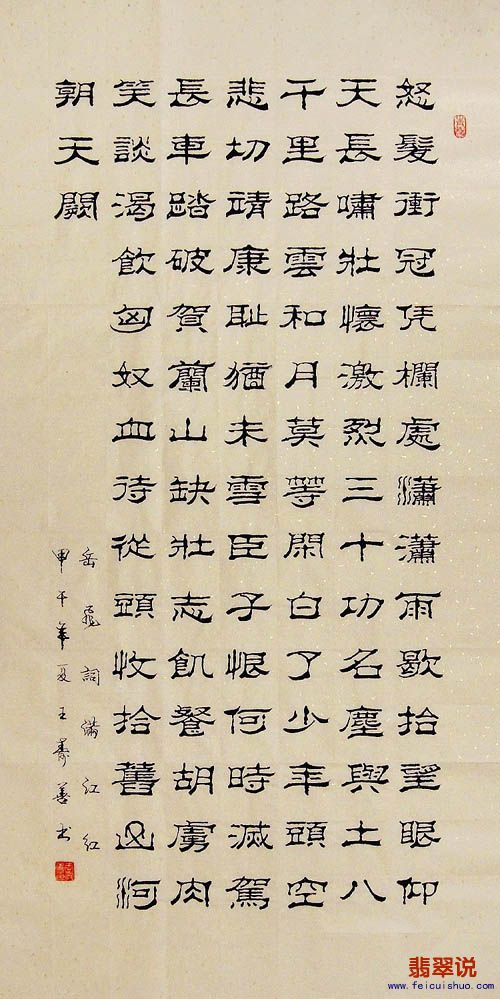 怒髮衝冠凭欄處瀟瀟雨歇抬望眼仰
天長嘯壯懷激烈三十功名塵與土八
千里路雲和月莫等閑白了少年頭空
悲切靖康耻猶未雪臣子恨何時滅駕
長車踏破賀蘭山缺壯志飢餐胡虜肉
笑談渴飲匈奴血待從頭收拾舊山河
朝天闕
岳飛詞滿江紅
甲午年夏王壽善书
翡翠说
www.feicuishuo.com